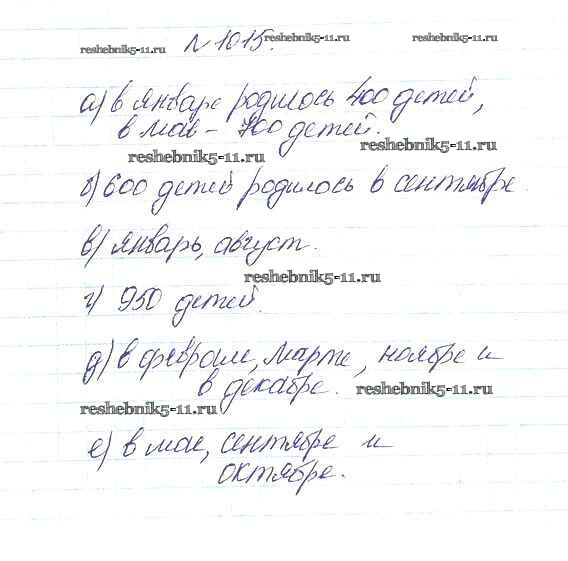 reshebnik5-11.ru №1015. reshebnik5-11.ru reshebnik5-11.ru
а) в январе родилось 400 детей,
в мае – 700 детей.
reshebnik5-11.ru reshebnik5-11.ru
б) 600 детей родилось в сентябре.
в) январь, август.
reshebnik5-11.ru
г) 950 детей.
д) в феврале, марте, ноябре и
в декабре. reshebnik5-11.ru
reshebnik5-11.ru
е) в мае, сентябре и
октябре.